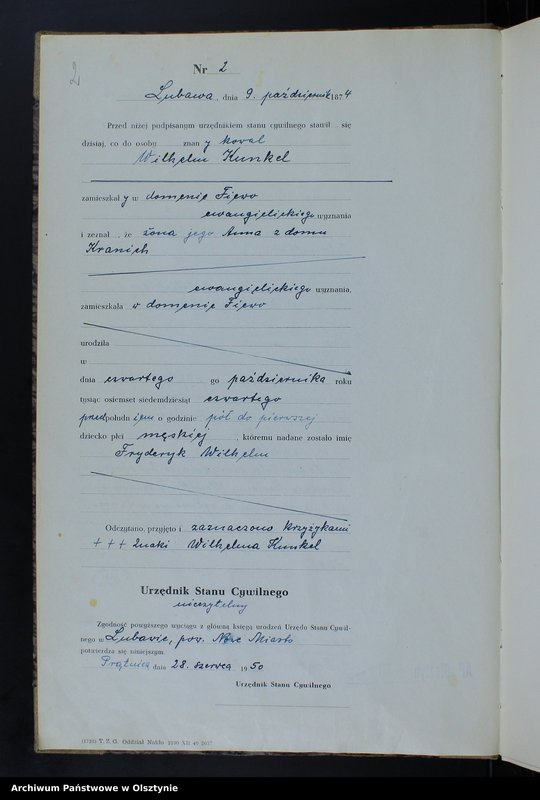 2
Nr 2
Lubawa, dnia 9. październik 1874
Przed niżej podpisanym urzędnikiem stanu cywilnego stawił się
dzisiaj, co do osoby znany koval
Wilhelm Kunkel
zamieszkały w domenie Fiewo
ewangielickiego wyznania
i zeznał, że żona jego Anna z domu
Kranich
ewangielickiego wyznania,
zamieszkała w domenie Fiewo
urodziła
w
dnia czwartego go października roku
tysiąc osiemset siedemdziesiąt czwartego
przedpołudniem o godzinie pół do pierwszej
dziecko płci męskiej, któremu nadane zostało imię
Fryderyk Wilhelm
Odczytano, przyjęto i zaznaczono krzyżykami
+++ Znaki Wilhelma Kunkel
Urzędnik Stanu Cywilnego
nieczytelny
Zgodność powyższego wyciągu z główną księgą urodzeń Urzędu Stanu Cywil-
nego w Lubawie, pow. Nowe Miasto
potwierdza się niniejszym.
Prątnica dnia 28. czerwca 1950
Urzędnik Stanu Cywilnego
T. Z. G. Oddział Nakło
Archiwum Państwowe w Olsztynie